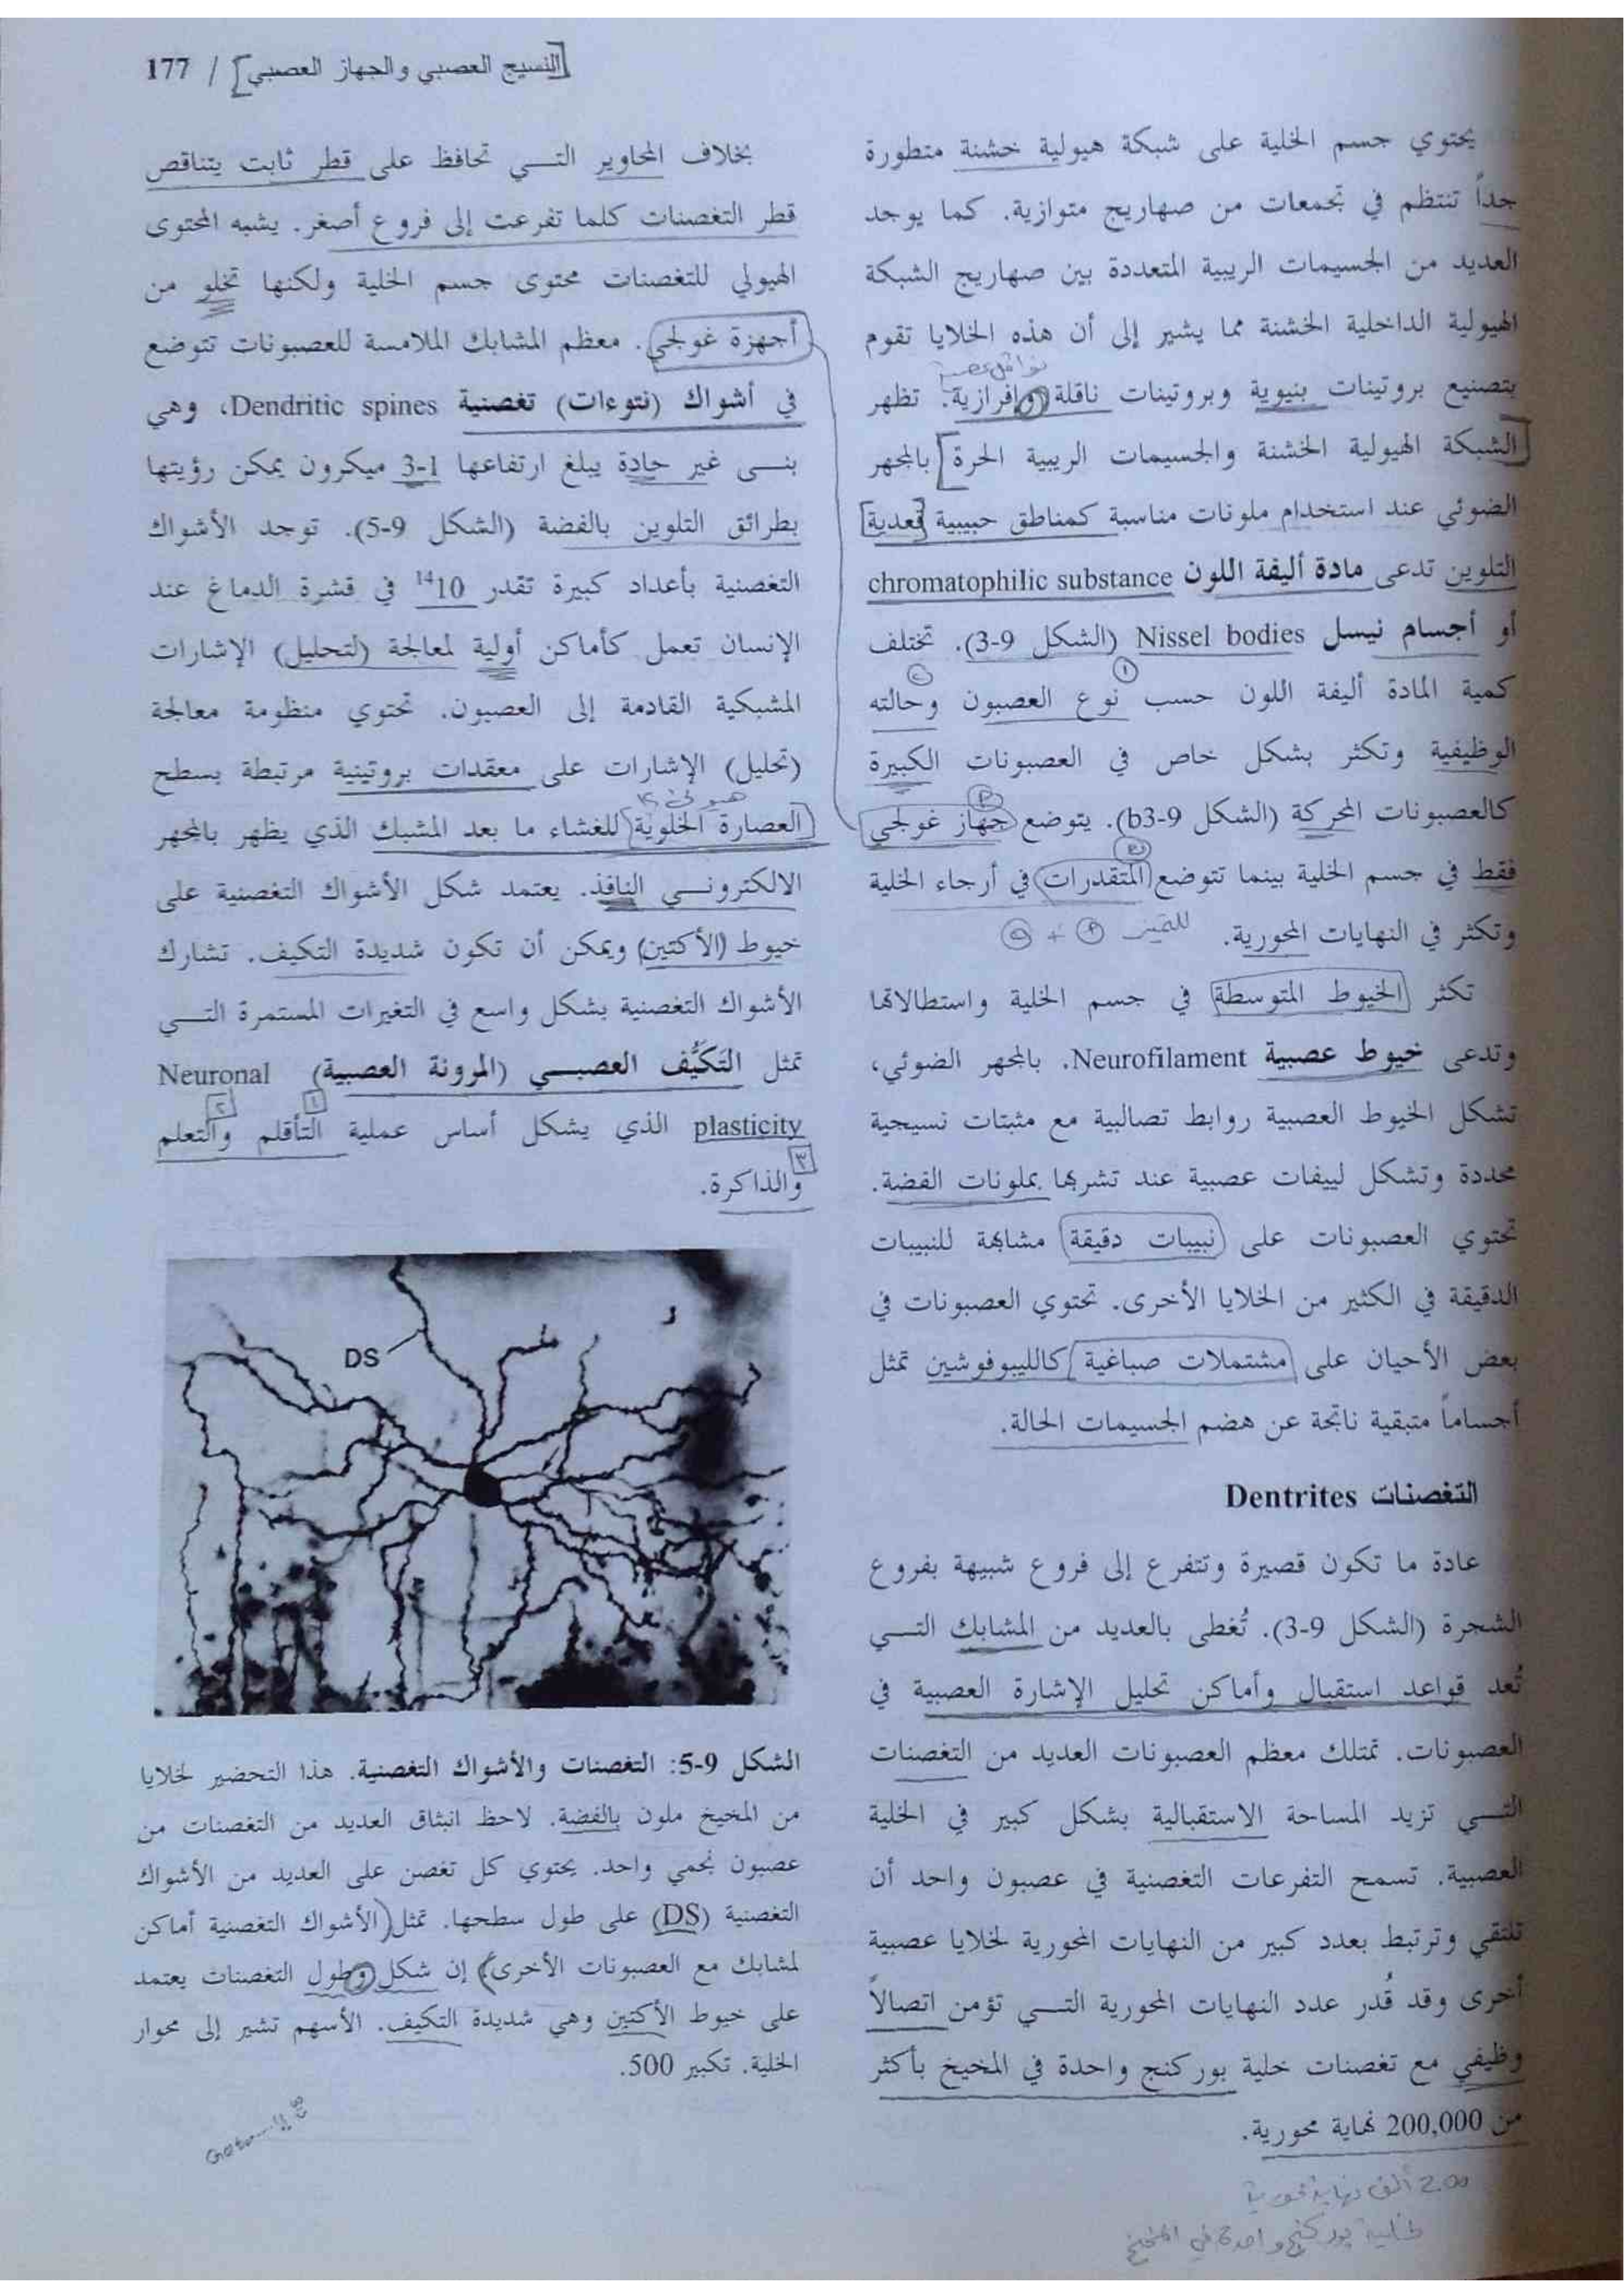 [النسيج العصبي والجهاز العصبي] / 177
يحتوي جسم الخلية على شبكة هيولية خشنة متطورة
جداً تنتظم في تجمعات من صهاريج متوازية. كما يوجد
العديد من الجسيمات الريبية المتعددة بين صهاريج الشبكة
الهيولية الداخلية الخشنة مما يشير إلى أن هذه الخلايا تقوم
بتصنيع بروتينات بنيوية وبروتينات ناقلة وإفرازية. تظهر
الشبكة الهيولية الخشنة والجسيمات الريبية الحرة بالمجهر
الضوئي عند استخدام ملونات مناسبة كمناطق حبيبية قعدية
التلوين تدعى مادة أليفة اللون chromatophilic substance
أو أجسام نيسل Nissel bodies (الشكل 9-3). تختلف
كمية المادة أليفة اللون حسب نوع العصبون وحالته
الوظيفية وتكثر بشكل خاص في العصبونات الكبيرة
كالعصبونات المحركة (الشكل 9-b3). يتوضع جهاز غولجي
فقط في جسم الخلية بينما تتوضع المتقدرات في أرجاء الخلية
وتكثر في النهايات المحورية.
تكثر الخيوط المتوسطة في جسم الخلية واستطالاتها
وتدعى خيوط عصبية Neurofilament. بالمجهر الضوئي،
تشكل الخيوط العصبية روابط تصالبية مع مثبتات نسيجية
محددة وتشكل لييفات عصبية عند تشربها بملونات الفضة.
تحتوي العصبونات على نبيبات دقيقة مشابهة للنبيبات
الدقيقة في الكثير من الخلايا الأخرى. تحتوي العصبونات في
بعض الأحيان على مشتملات صباغية كالليبوفوشين تمثل
أجساماً متبقية ناتجة عن هضم الجسيمات الحالة.
التغصنات Dentrites
عادة ما تكون قصيرة وتتفرع إلى فروع شبيهة بفروع
الشجرة (الشكل 9-3). تُغطى بالعديد من المشابك التي
تُعد قواعد استقبال وأماكن تحليل الإشارة العصبية في
العصبونات. تمتلك معظم العصبونات العديد من التغصنات
التي تزيد المساحة الاستقبالية بشكل كبير في الخلية
العصبية. تسمح التفرعات التغصنية في عصبون واحد أن
تلتقي وترتبط بعدد كبير من النهايات المحورية لخلايا عصبية
أخرى وقد قُدر عدد النهايات المحورية التي تؤمن اتصالاً
وظيفي مع تغصنات خلية بوركنج واحدة في المخيخ بأكثر
من 200,000 نهاية محورية.
200 ألف نهاية محورية
لخلية بوركنج واحدة في المخيخ
بخلاف المحاوير التي تحافظ على قطر ثابت يتناقص
قطر التغصنات كلما تفرعت إلى فروع أصغر. يشبه المحتوى
الهيولي للتغصنات محتوى جسم الخلية ولكنها تخلو من
أجهزة غولجي. معظم المشابك الملامسة للعصبونات تتوضع
في أشواك (نتوءات) تغصنية Dendritic spines، وهي
بنى غير حادة يبلغ ارتفاعها 1-3 ميكرون يمكن رؤيتها
بطرائق التلوين بالفضة (الشكل 9-5). توجد الأشواك
التغصنية بأعداد كبيرة تقدر 10¹⁴ في قشرة الدماغ عند
الإنسان تعمل كأماكن أولية لمعالجة (لتحليل) الإشارات
المشبكية القادمة إلى العصبون. تحتوي منظومة معالجة
(تحليل) الإشارات على معقدات بروتينية مرتبطة بسطح
العصارة الخلوية للغشاء ما بعد المشبك الذي يظهر بالمجهر
الالكتروني النافذ. يعتمد شكل الأشواك التغصنية على
خيوط (الأكتين) ويمكن أن تكون شديدة التكيف. تشارك
الأشواك التغصنية بشكل واسع في التغيرات المستمرة التي
تمثل التَكَيُّف العصبي (المرونة العصبية) Neuronal
plasticity الذي يشكل أساس عملية التأقلم والتعلم
والذاكرة.
DS
الشكل 9-5: التغصنات والأشواك التغصنية. هذا التحضير لخلايا
من المخيخ ملون بالفضة. لاحظ انبثاق العديد من التغصنات من
عصبون نجمي واحد. يحتوي كل تغصن على العديد من الأشواك
التغصنية (DS) على طول سطحها. تمثل الأشواك التغصنية أماكن
لمشابك مع العصبونات الأخرى. إن شكل وطول التغصنات يعتمد
على خيوط الأكتين وهي شديدة التكيف. الأسهم تشير إلى محوار
الخلية. تكبير 500.